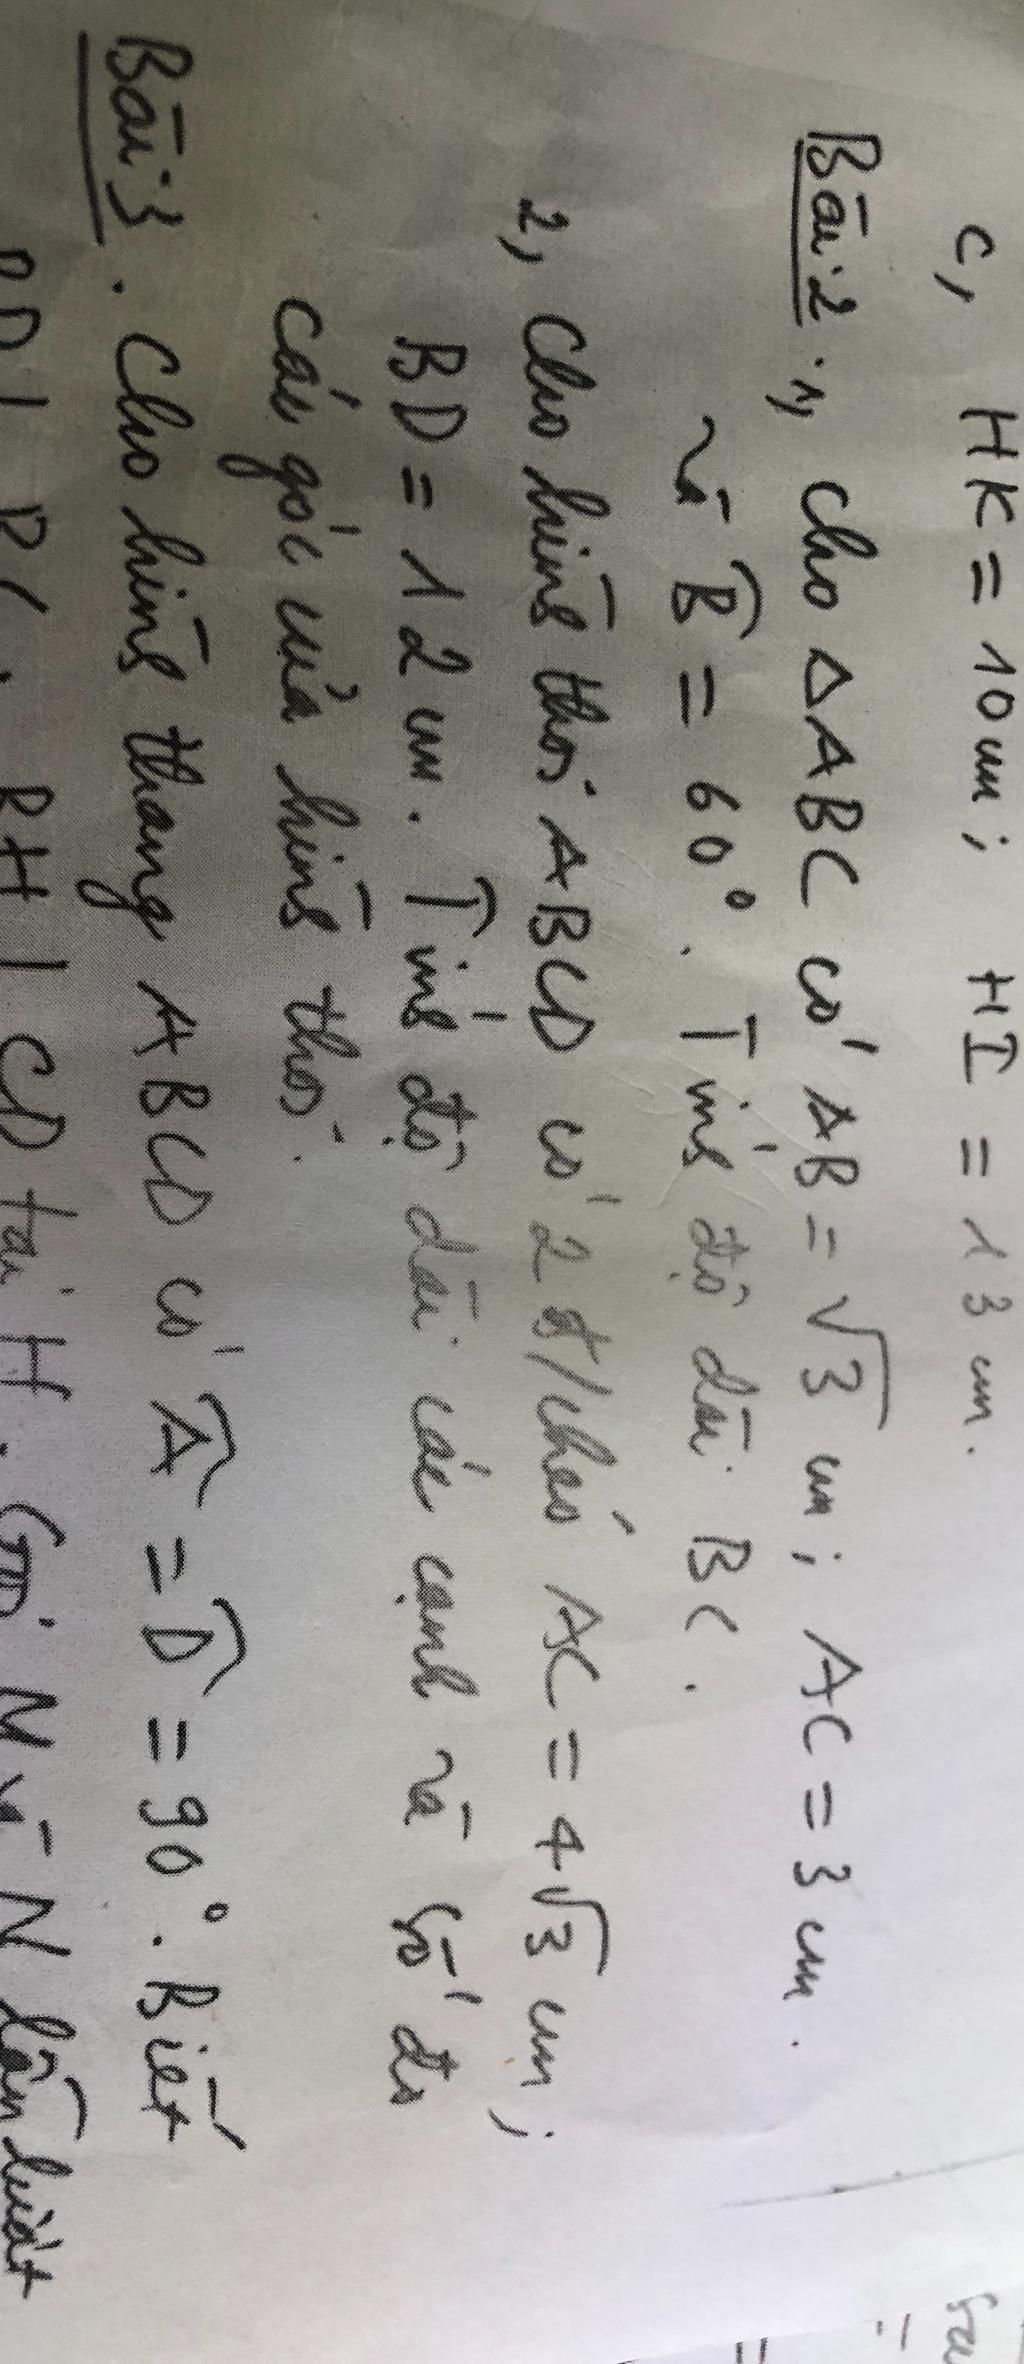 c, HK = 10cm; HI = 13 cm.
Bài 2. 1, Cho △ABC có AB = √3 cm; AC = 3 cm.
và B̂ = 60°. Tính độ dài BC.
2, Cho hình thoi ABCD có 2 đ/chéo AC = 4√3 cm;
BD = 12 cm. Tính độ dài các cạnh và số đo
các góc của hình thoi.
Bài 3. Cho hình thang ABCD có Â = D̂ = 90°. Biết
BD ⊥ BC. BH ⊥ CD tại H. Gọi M và N lần lượt